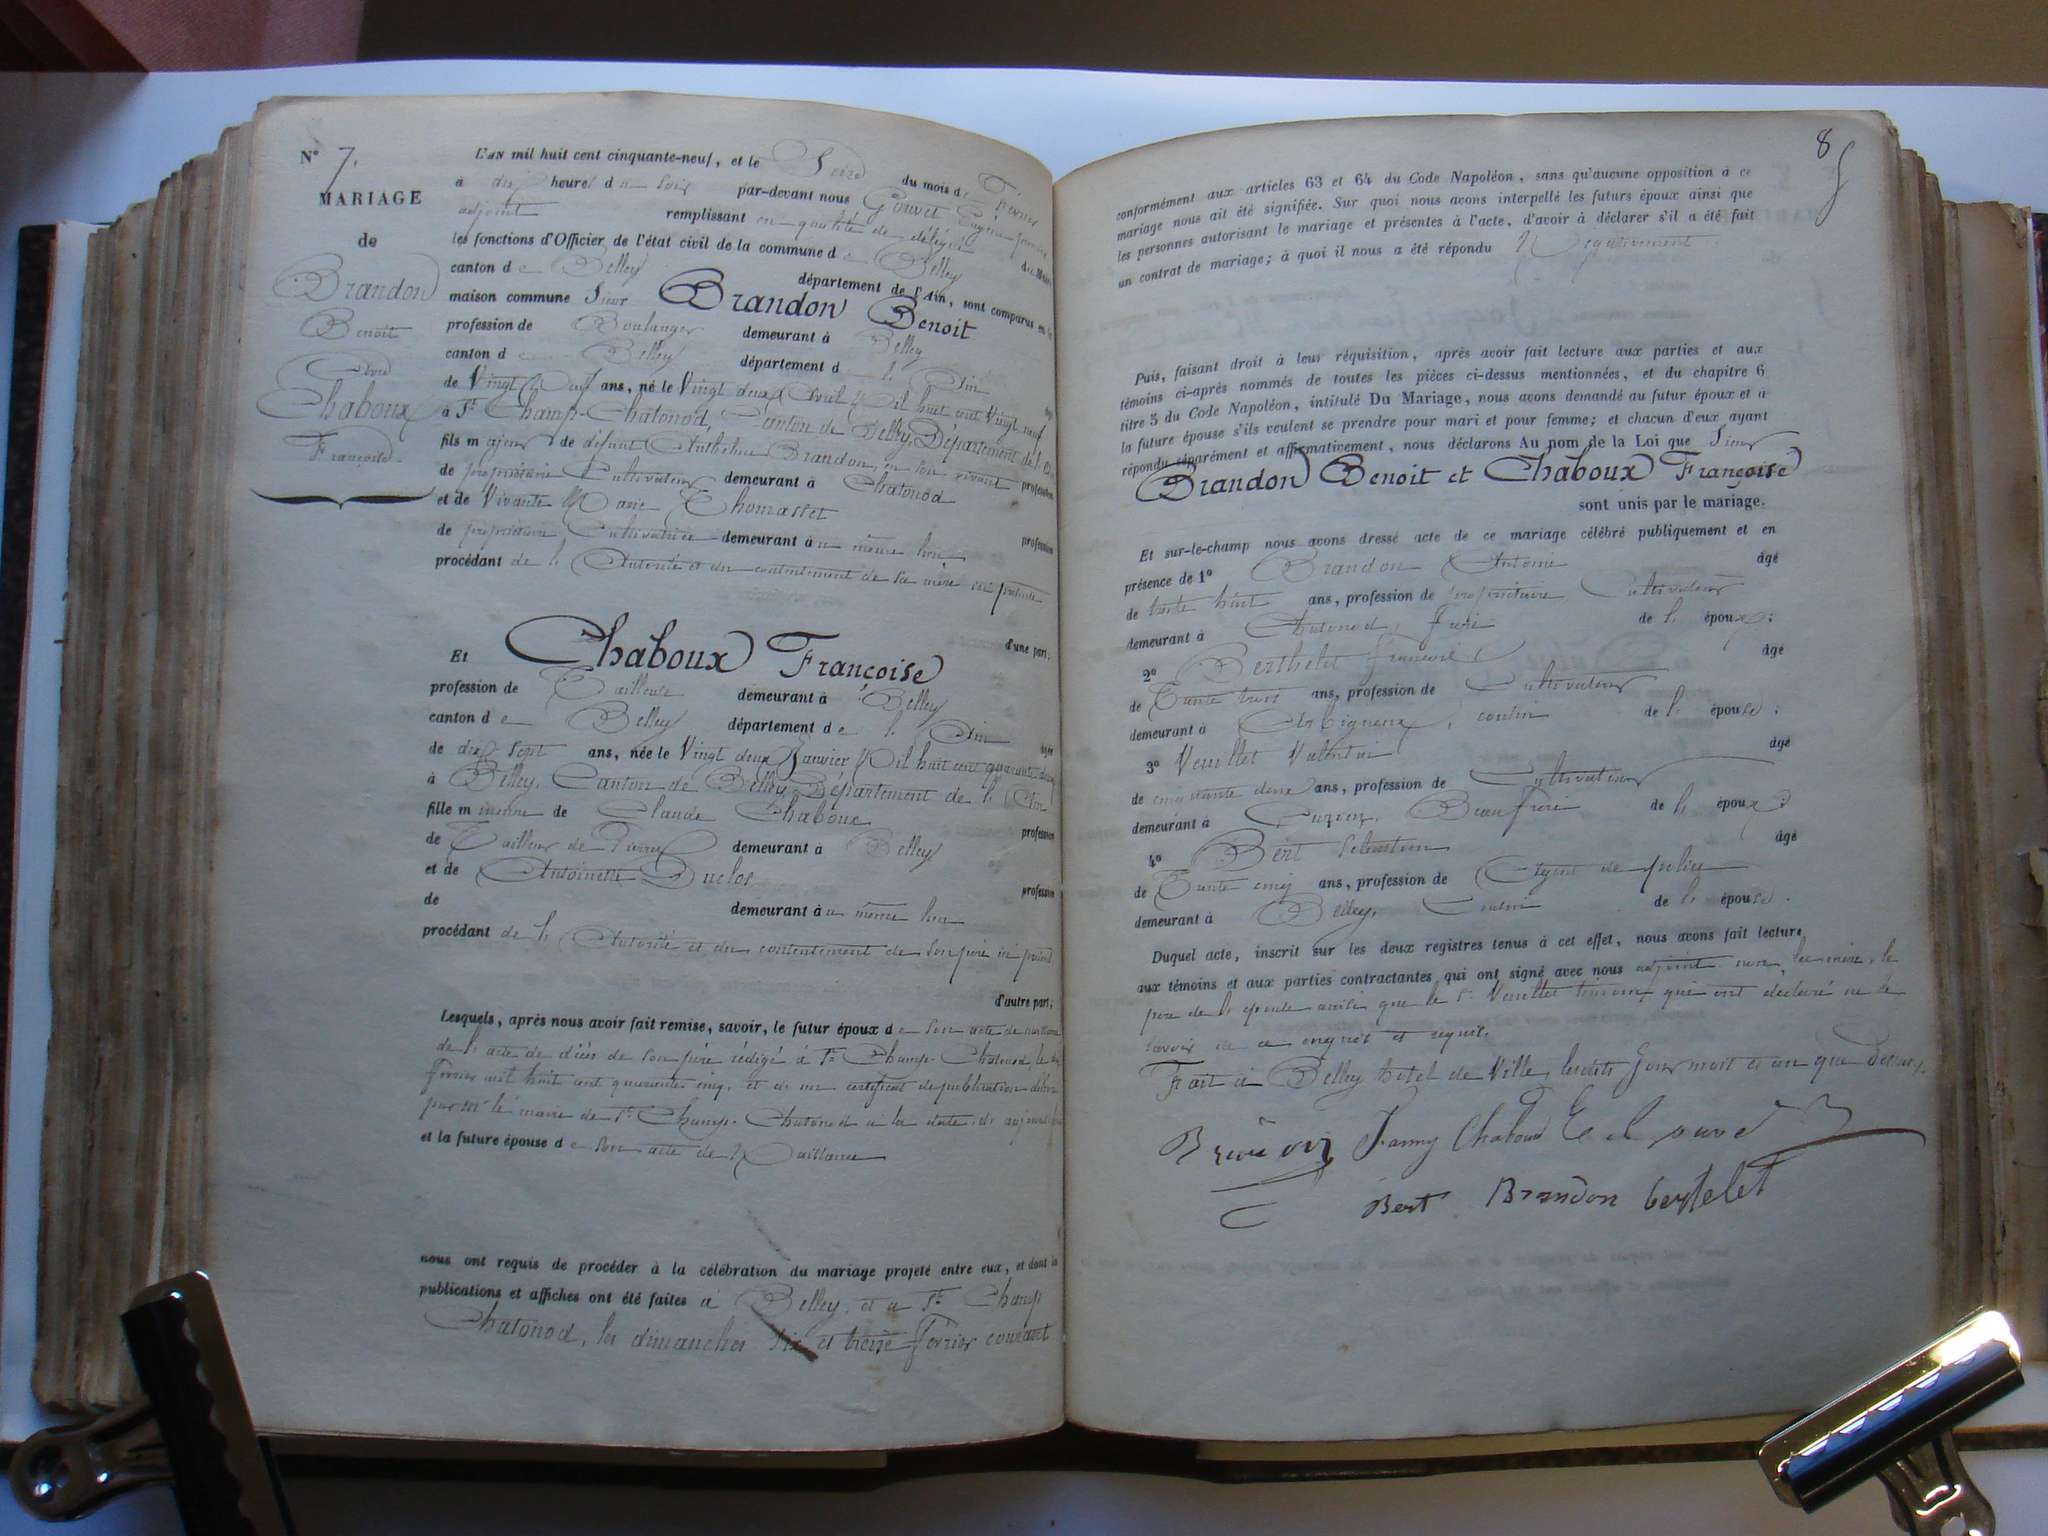 N° 7.
MARIAGE
de
Brandon
Benoit
Avec
Chaboux
Françoise.
L'AN mil huit cent cinquante-neuf, et le Seize du mois de Février
à dix heures du soir par-devant nous Gouvet Eugène premier
adjoint remplissant en qualité de délégué du Maire
les fonctions d'Officier de l'état civil de la commune de Belley
canton de Belley département de l'Ain, sont comparus en la
maison commune Sieur Brandon Benoit
profession de Boulanger demeurant à Belley
canton de Belley département de l'Ain âgé
de Vingt Neuf ans, né le Vingt deux Avril Mil huit cent Vingt neuf
à St Champ-Chatonod, Canton de Belley, Département de l'Ain
fils majeur de défunt Anthelme Brandon, en son vivant profession
de propriétaire Cultivateur demeurant à Chatonod
et de Vivante Marie Thomasset profession
de propriétaire Cultivatrice demeurant à au même lieu
procédant de l'Autorité et du contentement de sa mère ici présente
d'une part;
Et Chaboux Françoise
profession de Tailleuse demeurant à Belley
canton de Belley département de l'Ain âgée
de dix Sept ans, née le Vingt deux Janvier Mil huit cent quarante deux
à Belley, Canton de Belley, Département de l'Ain
fille mineure de Claude Chaboux profession
de Tailleur de Pierres demeurant à Belley
et de Antoinette Duclos profession
de demeurant à au même lieu
procédant de l'Autorité et du contentement de son père ici présent
d'autre part;
Lesquels, après nous avoir fait remise, savoir, le futur époux de son acte de naissance
de l'acte de décès de son père rédigé à St Champ-Chatonod, le
Février mil huit cent quarante cinq, et d'un certificat de publication délivré
par Mr le maire de St Champ-Chatonod à la date de aujourd'hui
et la future épouse de son acte de Naissance
nous ont requis de procéder à la célébration du mariage projeté entre eux, et dont les
publications et affiches ont été faites à Belley, et à St Champ
Chatonod, les dimanches six et treize Février courant
8
conformément aux articles 63 et 64 du Code Napoléon, sans qu'aucune opposition à ce
mariage nous ait été signifiée. Sur quoi nous avons interpellé les futurs époux ainsi que
les personnes autorisant le mariage et présentes à l'acte, d'avoir à déclarer s'il a été fait
un contrat de mariage; à quoi il nous a été répondu Négativement.
Puis, faisant droit à leur réquisition, après avoir fait lecture aux parties et aux
témoins ci-après nommés de toutes les pièces ci-dessus mentionnées, et du chapitre 6
titre 5 du Code Napoléon, intitulé Du Mariage, nous avons demandé au futur époux et à
la future épouse s'ils veulent se prendre pour mari et pour femme; et chacun d'eux ayant
répondu séparément et affirmativement, nous déclarons Au nom de la Loi que Sieur
Brandon Benoit et Chaboux Françoise
sont unis par le mariage.
Et sur-le-champ nous avons dressé acte de ce mariage célébré publiquement et en
présence de 1° Brandon Antoine âgé
de trente huit ans, profession de propriétaire Cultivateur
demeurant à Chatonod, frère de l'époux;
2° Berthelet François âgé
de Trente trois ans, profession de Cultivateur
demeurant à Arbignieux, cousin de l'épouse;
3° Veuillet Valentin âgé
de cinquante deux ans, profession de Cultivateur
demeurant à Cuzieu, Beau frère de l'époux;
4° Bert Sébastien âgé
de Trente cinq ans, profession de Agent de police
demeurant à Belley, Cousin de l'épouse.
Duquel acte, inscrit sur les deux registres tenus à cet effet, nous avons fait lecture
aux témoins et aux parties contractantes qui ont signé avec nous adjoint non la mère, le
père de l'épouse ainsi que le Sr Veuillet témoin qui ont déclaré ne le
savoir de ce enquis et requis.
Fait à Belley hôtel de Ville, lesdits Jour mois et an que dessus.
Brandon Fanny Chaboux
Bert Brandon bertelet